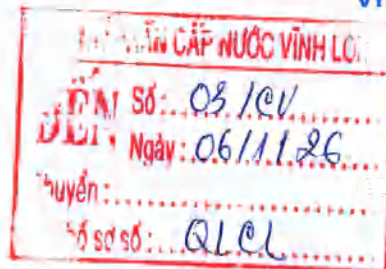 CẤP NƯỚC VĨNH LO
ĐẾN
Số: 03/CV
Ngày: 06/1/26
huyển:
ồ sơ số: QLCL